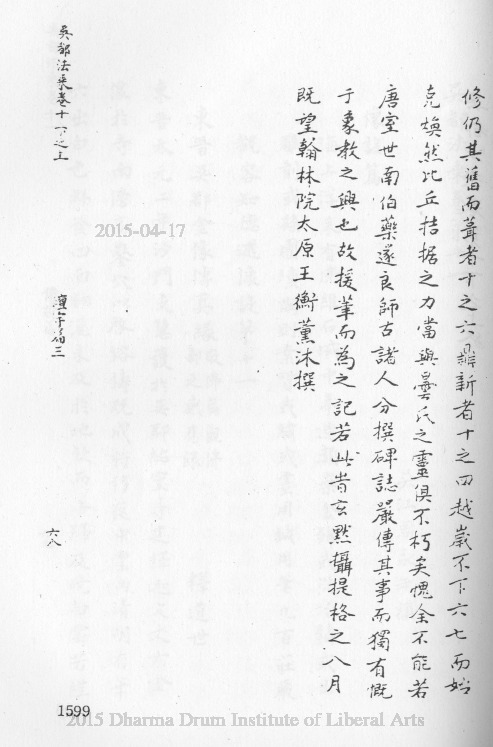 修仍其舊而葺者十之六鼎新者十之四越歲不下六七而始
克煥然比丘拮据之力當與曇氏之靈俱不朽矣愧余不能若
唐室世南伯藥遂良師古諸人分撰碑誌嚴傳其事而獨有慨
于象教之興也故援筆而為之記若此旹玄黓攝提格之八月
既望翰林院太原王衡薰沐撰
吳都法乘卷十下之上
六八
1599
2015-04-17
2015 Dharma Drum Institute of Liberal Arts